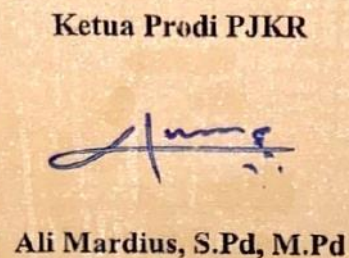 Ketua Prodi PJKR
Ali Mardius, S.Pd, M.Pd